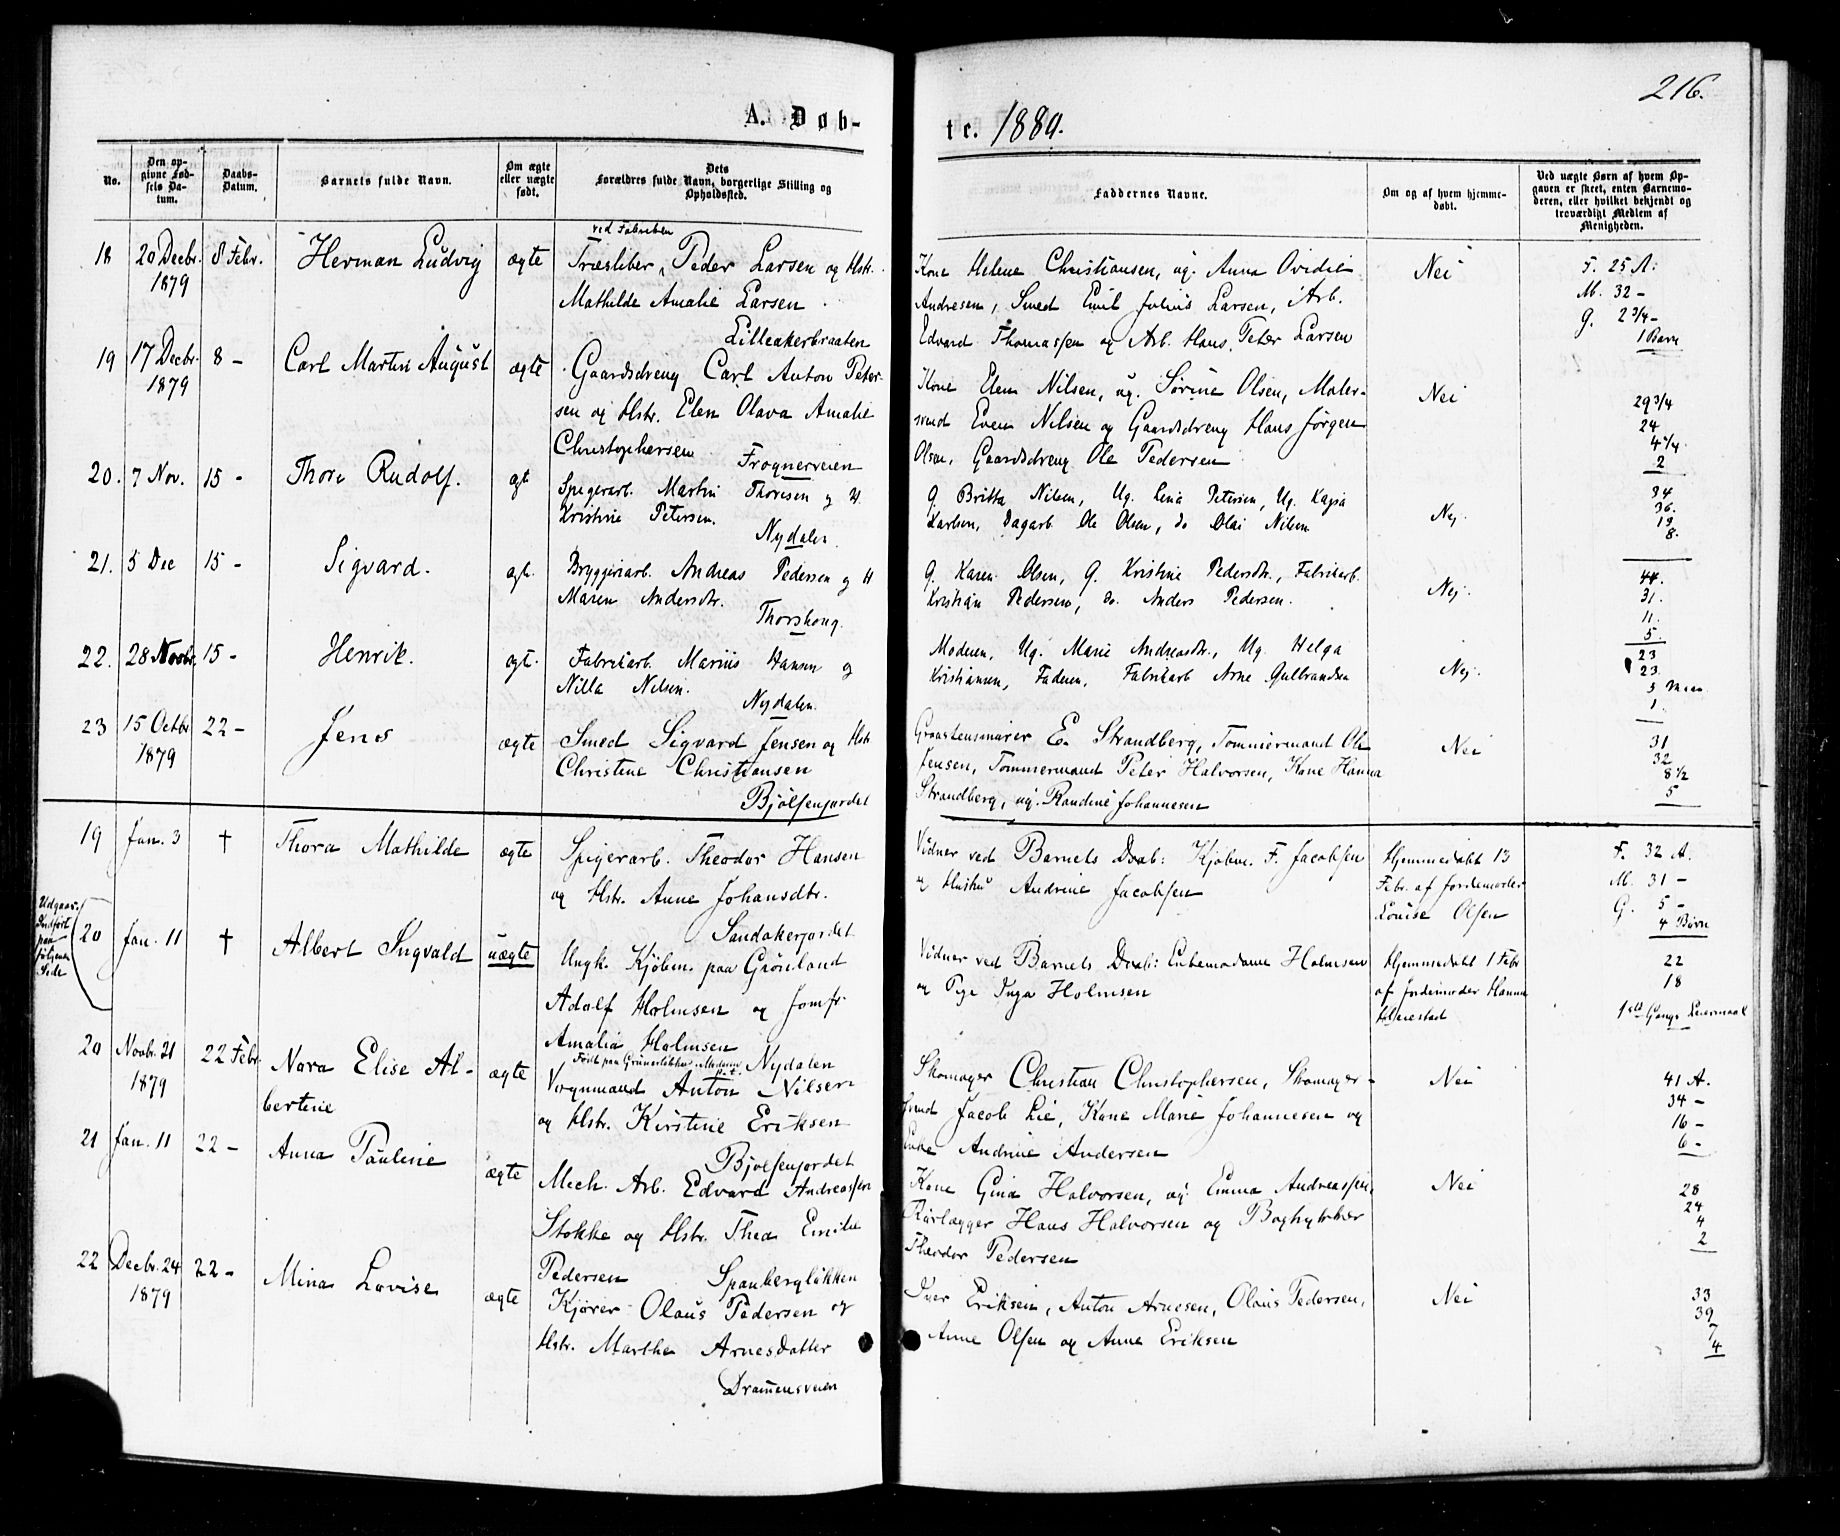 216.
A. Døb-
te. 1880.
No.
Den op-
givne Fød-
sels Da-
tum.
Daabs-
Datum.
Barnets fulde Navn.
Om ægte
eller uægte
født.
Dets
Forældres fulde Navn, borgerlige Stilling og
Opholdssted.
Faddernes Navne.
Om og af hvem hjemme-
døbt.
Ved uægte Børn af hvem Op-
gaven er skeet, enten Barnemo-
deren, eller hvilket bekjendt og
troværdigt Medlem af
Menigheden.
18 20 Decbr. 1879 8 Febr. Herman Ludvig ægte
ved Fabriken
Træsliber Peder Larsen og Hstr.
Mathilde Amalie Larsen
Lilleakerbraaten
Kone Helene Christiansen, ug. Anna Ovidie
Andresen, Smed Emil Julius Larsen, Arb.
Edvard Thomassen og Arb. Hans Peter Larsen
Nei
F. 25 A:
M. 32 -
G. 2 3/4 -
1 Barn
19 17 Decbr. 1879 8 - Carl Martin August ægte
Gaardsdreng Carl Anton Peter-
sen og Hstr. Elen Olava Amalie
Christophersen Frognerveien
Kone Elen Nilsen, ug. Sørine Olsen, Maler-
svend Even Nilsen og Gaardsdreng Hans Jørgen
Olsen, Gaardsdreng Ole Pedersen
Nei
29 3/4
24
4 1/4
2
20. 7 Nov. 15 - Thore Rudolf. ægt
Spigerarb. Martin Thoresen og H.
Kristine Petersen.
Nydalen.
G. Britta Nilsen, Ug. Lena Petersen, Ug. Kajsa
Karlsen, Dagarb. Ole Olsen, do Olai Nilsen
Nej.
34
36.
19
8.
21. 5 Dec 15 - Sigvard. ægt.
Bryggeriarb. Andreas Pedersen og H
Maren Andersdtr.
Thorshoug.
G. Karen Olsen, G. Kristine Pedersdtr., Fabrikarb.
Kristian Pedersen, do. Anders Pedersen.
Nej.
44.
31.
11.
5.
22. 28 Novbr. 15 - Henrik. ægt.
Fabrikarb. Marius Hansen og
Nilla Nilsen.
Nydalen.
Moderen, Ug. Marie Andreasdtr., Ug. Helga
Kristiansen, Faderen, Fabrikarb Arne Gulbrandsen
Nej.
23
23.
5 Maan.
1.
23 15 Octbr 1879 22 - Jens ægte
Smed Sigvard Jensen og Hstr
Christine Christiansen
Bjølsenjordet
Graastensmurer E. Strandberg, Tømmermand Ole
Jensen, Tømmermand Peter Halvorsen, Kone Hanna
Strandberg, ug. Randine Johannesen
Nei
31
32
8 1/2
5
19 Jan. 3 † Thora Mathilde ægte
Spigerarb. Theodor Hansen
og Hstr. Anne Johansdtr.
Sandakerjordet
Vidner ved Barnets Daab: Kjøbm. F. Jacobsen
og Hustru Andrine Jacobsen
Hjemmedøbt 13
Febr. af Jordemoder
Louise Olsen
F. 32 A.
M. 31 -
G. 5 -
4 Børn
Udgaar.
Indført
paa
følgende
Side
20 Jan. 11 † Albert Sigvald uægte
Ungk. Kjøbm. paa Grønland
Adolf Holmsen og Jomfr.
Amalia Holmsen
Nydalen
Vidner ved Barnets Daab: Enkemadame Holmsen
og Pige Inga Holmsen
Hjemmedøbt 1 Febr
af Jordemoder Hanna
22
18
1ste Gangs Leiermaal
20 Novbr. 21 1879 22 Febr. Nora Elise Al-
bertine ægte
Født paa Grünerløkken
Vognmand Anton Nilsen
og Hstr. Kirstine Eriksen
Bjølsenjordet
Skomager Christian Christophersen, Skomager-
svend Jacob Lie, Kone Marie Johannesen og
Enke Andrine Andersen
Nei
41 A.
34 -
16 -
6 -
21 Jan. 11 22 - Anna Pauline ægte
Mech. Arb. Edvard Andreassen
Stokke og Hstr. Thea Emilie
Pedersen Spanbergløkken
Kone Gina Halvorsen, ug. Emma Andreassen,
Rørlægger Hans Halvorsen og Bogtrykker
Theodor Pedersen
Nei
28
24
4
2
22 Decbr. 24 1879 22 - Mina Lovise ægte
Kjører Olaus Pedersen og
Hstr. Marthe Arnesdatter
Drammensveien
Iver Eriksen, Anton Arnesen, Olaus Pedersen,
Anne Olsen og Anne Eriksen
Nei
33
39
7
4